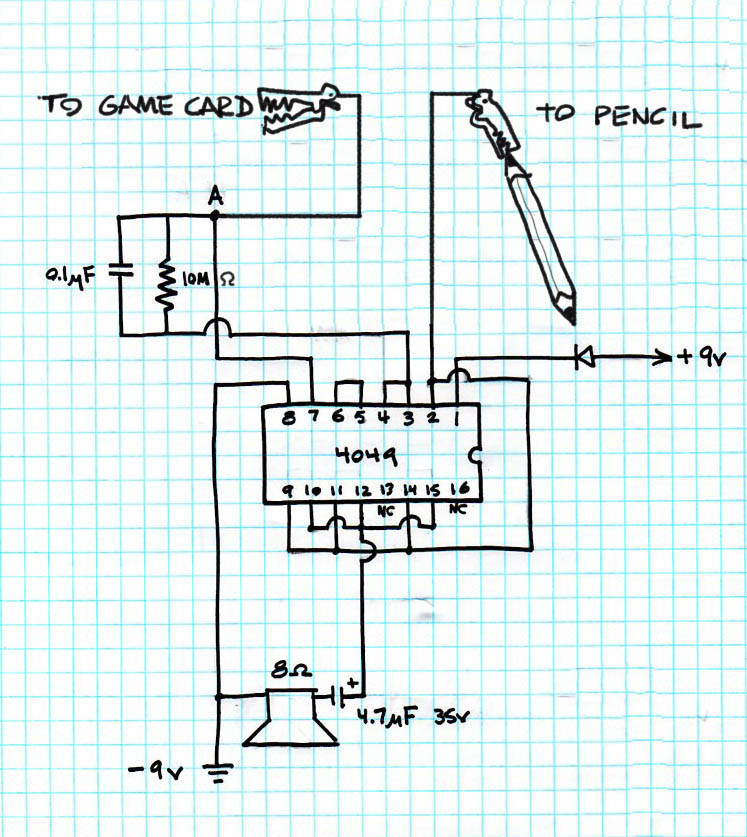 TO GAME CARD
TO PENCIL
A
0.1µF
10M Ω
+9v
8 7 6 5 4 3 2 1
4049
9 10 11 12 13 14 15 16
NC NC
8Ω
+
4.7µF 35v
-9v